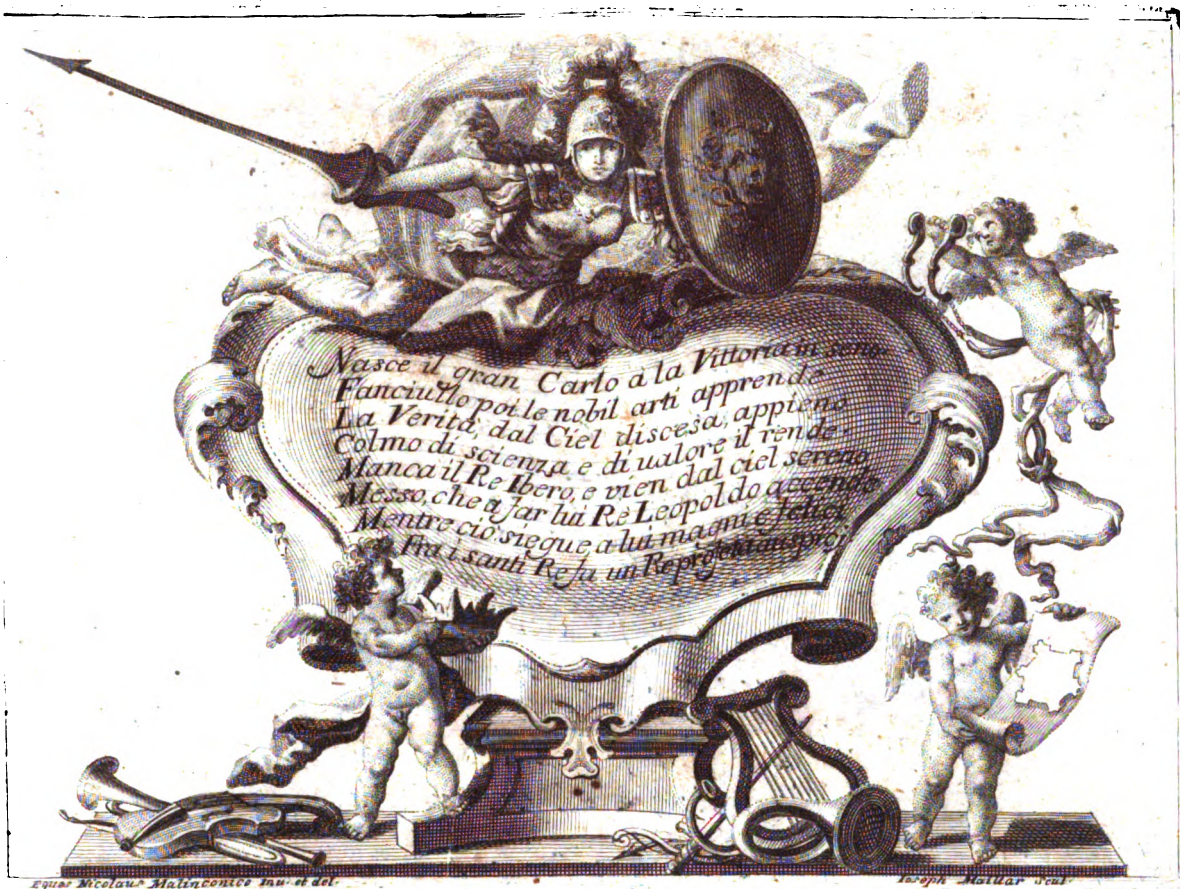 Nasce il gran Carlo a la Vittoria in seno.
Fanciullo poi le nobil arti apprende
La Verità, dal Ciel discesa, appieno
Colmo di scienza e di ualore il rende.
Manca il Re Ibero, e vien dal ciel sereno
Messo, che a far lui Re Leopoldo accende
Mentre ciò siegue, a lui magni e felici
Fra i santi Re fu un Re auspici
Eques Nicolaus Malinconico Inu. et del.
Ioseph Maliar Sculp.